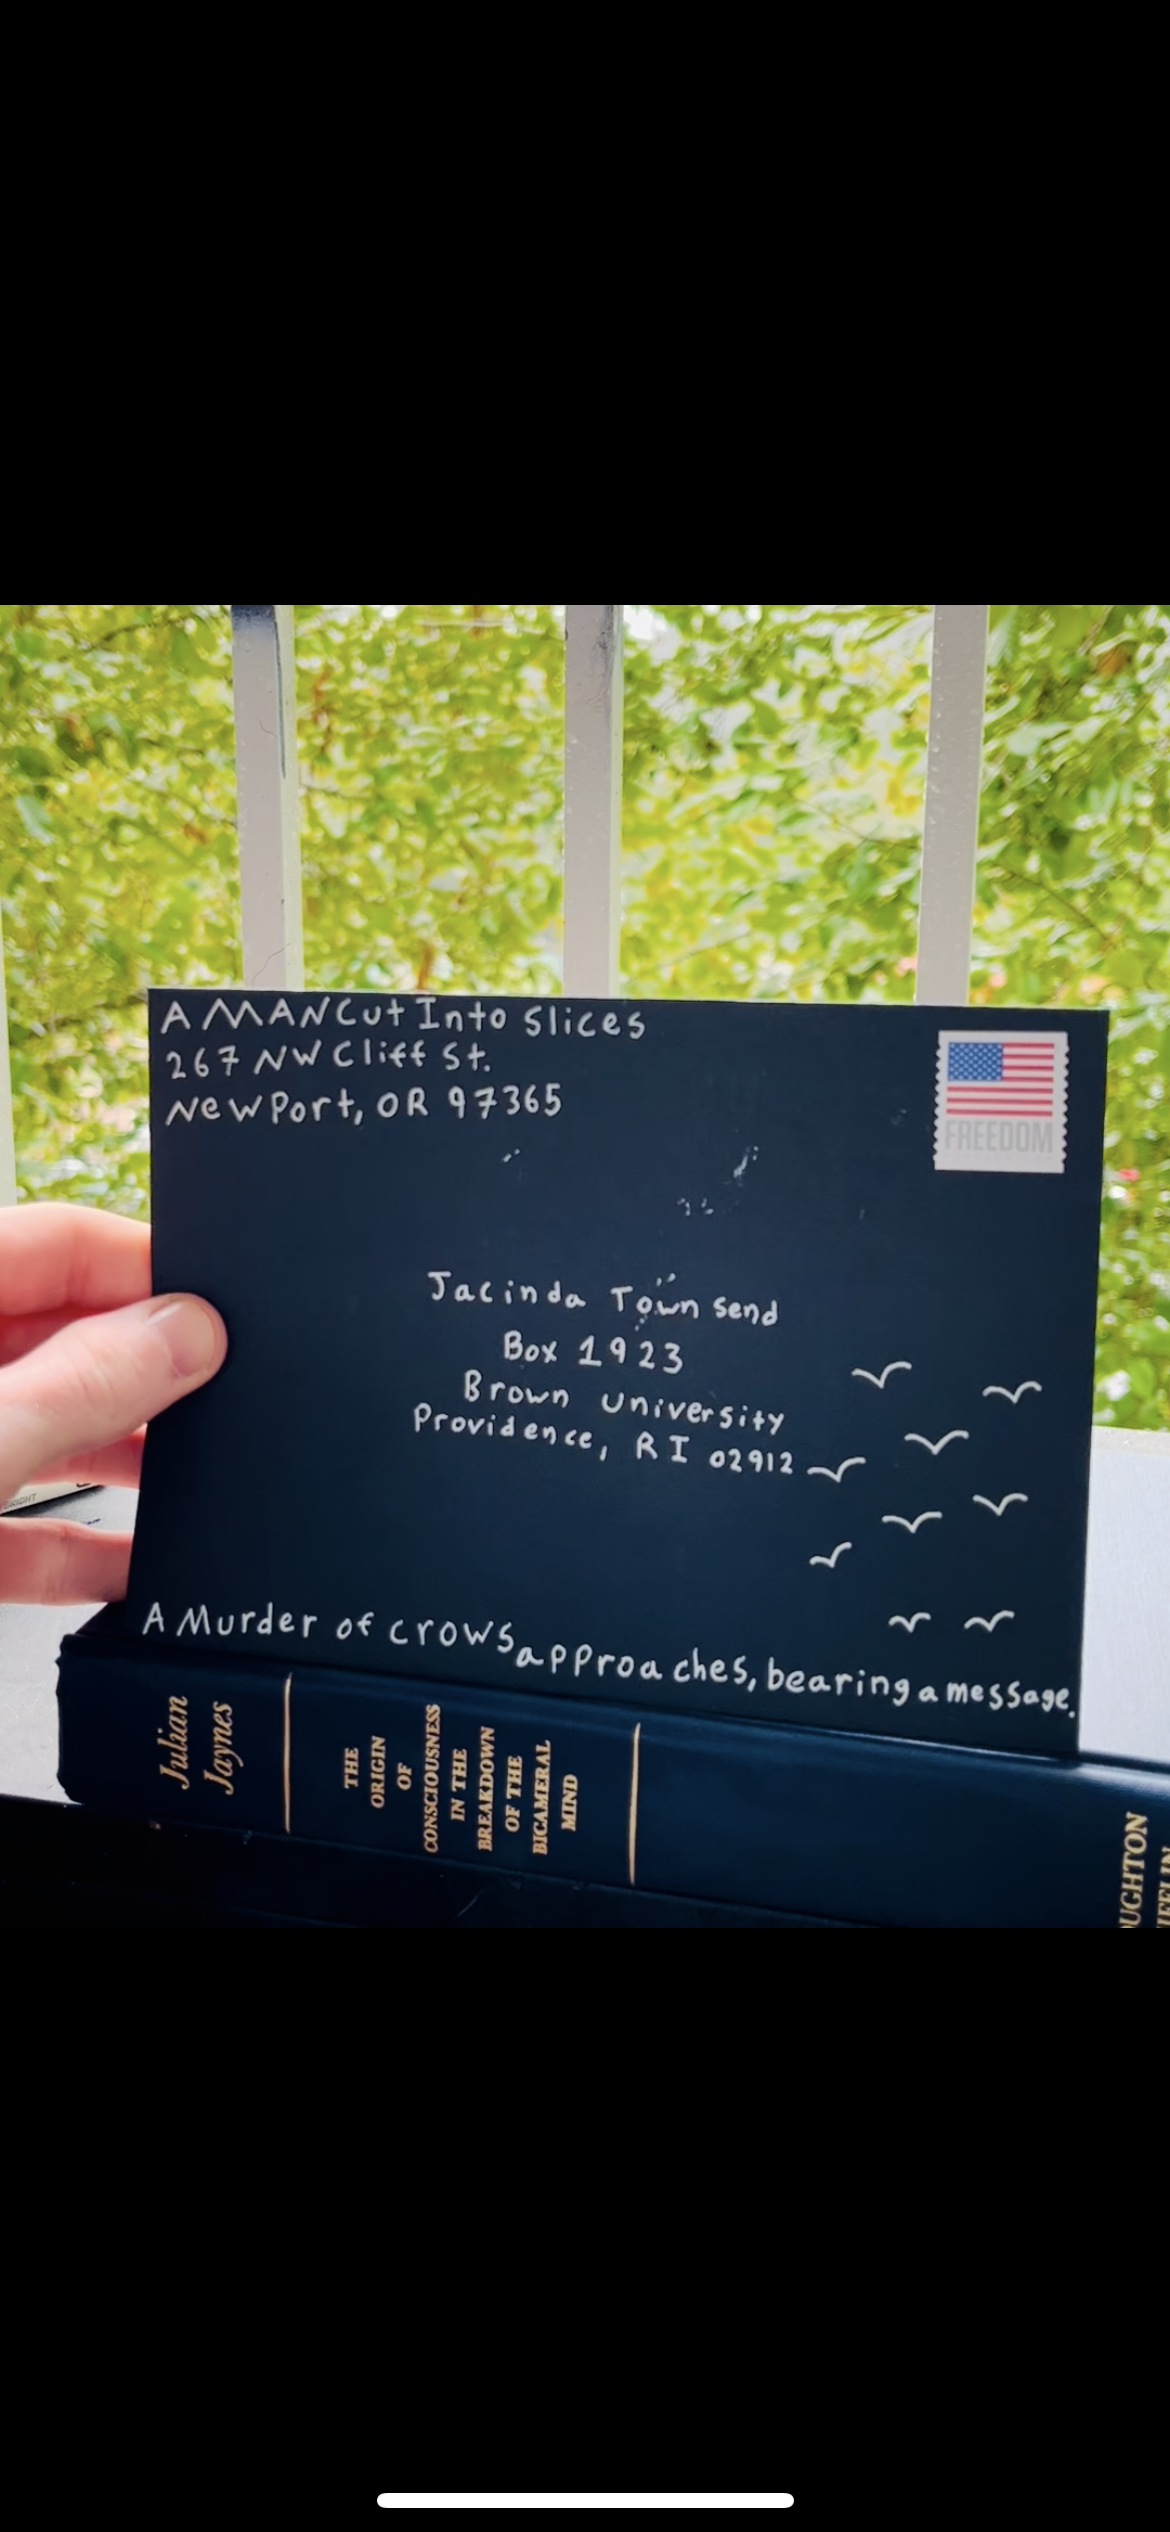 A MAN Cut Into Slices
267 NW Cliff St.
Newport, OR 97365
FREEDOM
Jacinda Townsend
Box 1923
Brown University
Providence, RI 02912
A Murder of crows approaches, bearing a message.
Julian
Jaynes
THE
ORIGIN
OF
CONSCIOUSNESS
IN THE
BREAKDOWN
OF THE
BICAMERAL
MIND